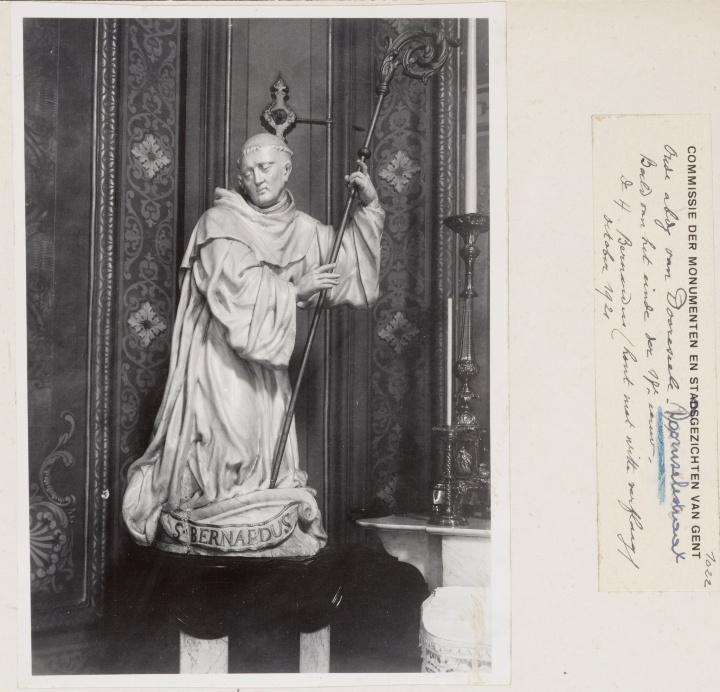 S. BERNARDUS
COMMISSIE DER MONUMENTEN EN STADSGEZICHTEN VAN GENT
Oude abdij van Dooresele. Doornzelestraat
Beeld van het einde der 17e eeuw.
De H. Bernardus (hout met witte verflaag)
October 1921
7022